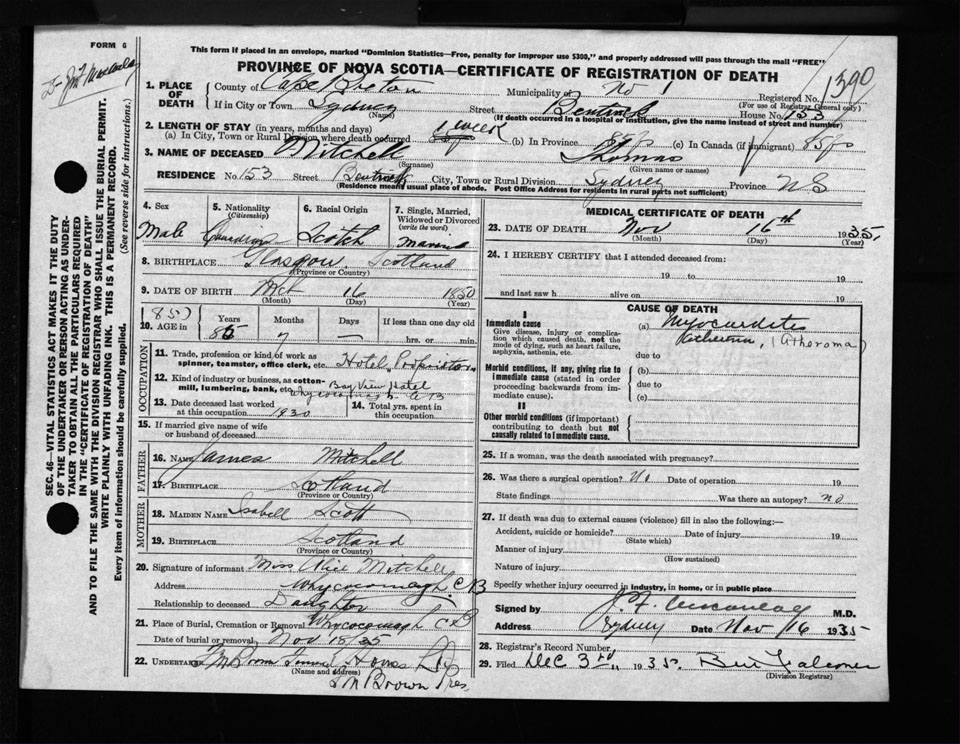 FORM 6
This form if placed in an envelope, marked "Dominion Statistics—Free, penalty for improper use $300," and properly addressed will pass through the mail "FREE"
PROVINCE OF NOVA SCOTIA—CERTIFICATE OF REGISTRATION OF DEATH
1390
1. PLACE OF DEATH
County of Cape Breton Municipality of No 1 Registered No.
(For use of Registrar General only)
If in City or Town Sydney Street Bentinck House No. 153
(Name) (If death occurred in a hospital or institution, give the name instead of street and number)
2. LENGTH OF STAY (in years, months and days)
(a) In City, Town or Rural Division where death occurred 1 week (b) In Province 85 yrs (c) In Canada (if immigrant) 85 yrs
3. NAME OF DECEASED Mitchell Thomas
(Surname) (Given name or names)
RESIDENCE No. 153 Street Bentinck City, Town or Rural Division Sydney Province NS
(Residence means usual place of abode. Post Office Address for residents in rural parts not sufficient)
SEC. 46—VITAL STATISTICS ACT MAKES IT THE DUTY
OF THE UNDERTAKER OR PERSON ACTING AS UNDER-
TAKER TO OBTAIN ALL THE PARTICULARS REQUIRED
IN THE "CERTIFICATE OF REGISTRATION OF DEATH"
AND TO FILE THE SAME WITH THE DIVISION REGISTRAR WHO SHALL ISSUE THE BURIAL PERMIT.
WRITE PLAINLY WITH UNFADING INK. THIS IS A PERMANENT RECORD.
Every item of information should be carefully supplied. (See reverse side for instructions.)
4. Sex
Male
5. Nationality
(Citizenship)
Canadian
6. Racial Origin
Scotch
7. Single, Married, Widowed or Divorced
(write the word)
Married
8. BIRTHPLACE Glasgow Scotland
(Province or Country)
9. DATE OF BIRTH 16 1850
(Month) (Day) (Year)
(85)
10. AGE in Years Months Days If less than one day old
85 7 — hrs. or min.
OCCUPATION
11. Trade, profession or kind of work as spinner, teamster, office clerk, etc. Hotel Proprietor
12. Kind of industry or business, as cotton-mill, lumbering, bank, etc. Bay View Hotel
Whycocomagh C B
13. Date deceased last worked at this occupation 1930
14. Total yrs. spent in this occupation
15. If married give name of wife or husband of deceased
FATHER
16. NAME James Mitchell
17. BIRTHPLACE Scotland
(Province or Country)
MOTHER
18. MAIDEN NAME Isabell Scott
19. BIRTHPLACE Scotland
(Province or Country)
20. Signature of informant Miss Alice Mitchell
Address Whycocomagh C B
Relationship to deceased Daughter
21. Place of Burial, Cremation or Removal Whycocomagh C B
Date of burial or removal Nov 18/35
22. UNDERTAKER Funeral Home Ltd
(Name and address)
Brown Pres
MEDICAL CERTIFICATE OF DEATH
23. DATE OF DEATH Nov 16th 1935
(Month) (Day) (Year)
24. I HEREBY CERTIFY that I attended deceased from:
19 to 19
and last saw h alive on 19
CAUSE OF DEATH
I
Immediate cause
Give disease, injury or complication which caused death, not the mode of dying, such as heart failure, asphyxia, asthenia, etc.
(a) Myocardite
(Atheroma)
due to
Morbid conditions, if any, giving rise to immediate cause (stated in order proceeding backwards from immediate cause).
(b)
due to
(c)
II
Other morbid conditions (if important) contributing to death but not causally related to immediate cause.
25. If a woman, was the death associated with pregnancy?
26. Was there a surgical operation? No Date of operation 19
State findings Was there an autopsy? no
27. If death was due to external causes (violence) fill in also the following:—
Accident, suicide or homicide? Date of injury 19
(State which)
Manner of injury
(How sustained)
Nature of injury
Specify whether injury occurred in industry, in home, or in public place
Signed by M.D.
Address Sydney Date Nov 16 1935
28. Registrar's Record Number
29. Filed Dec 3rd 1935 Falconer
(Division Registrar)